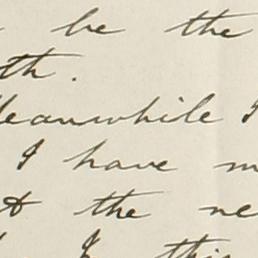 be the
th.
Meanwhile I
I have m
at the ne
I this